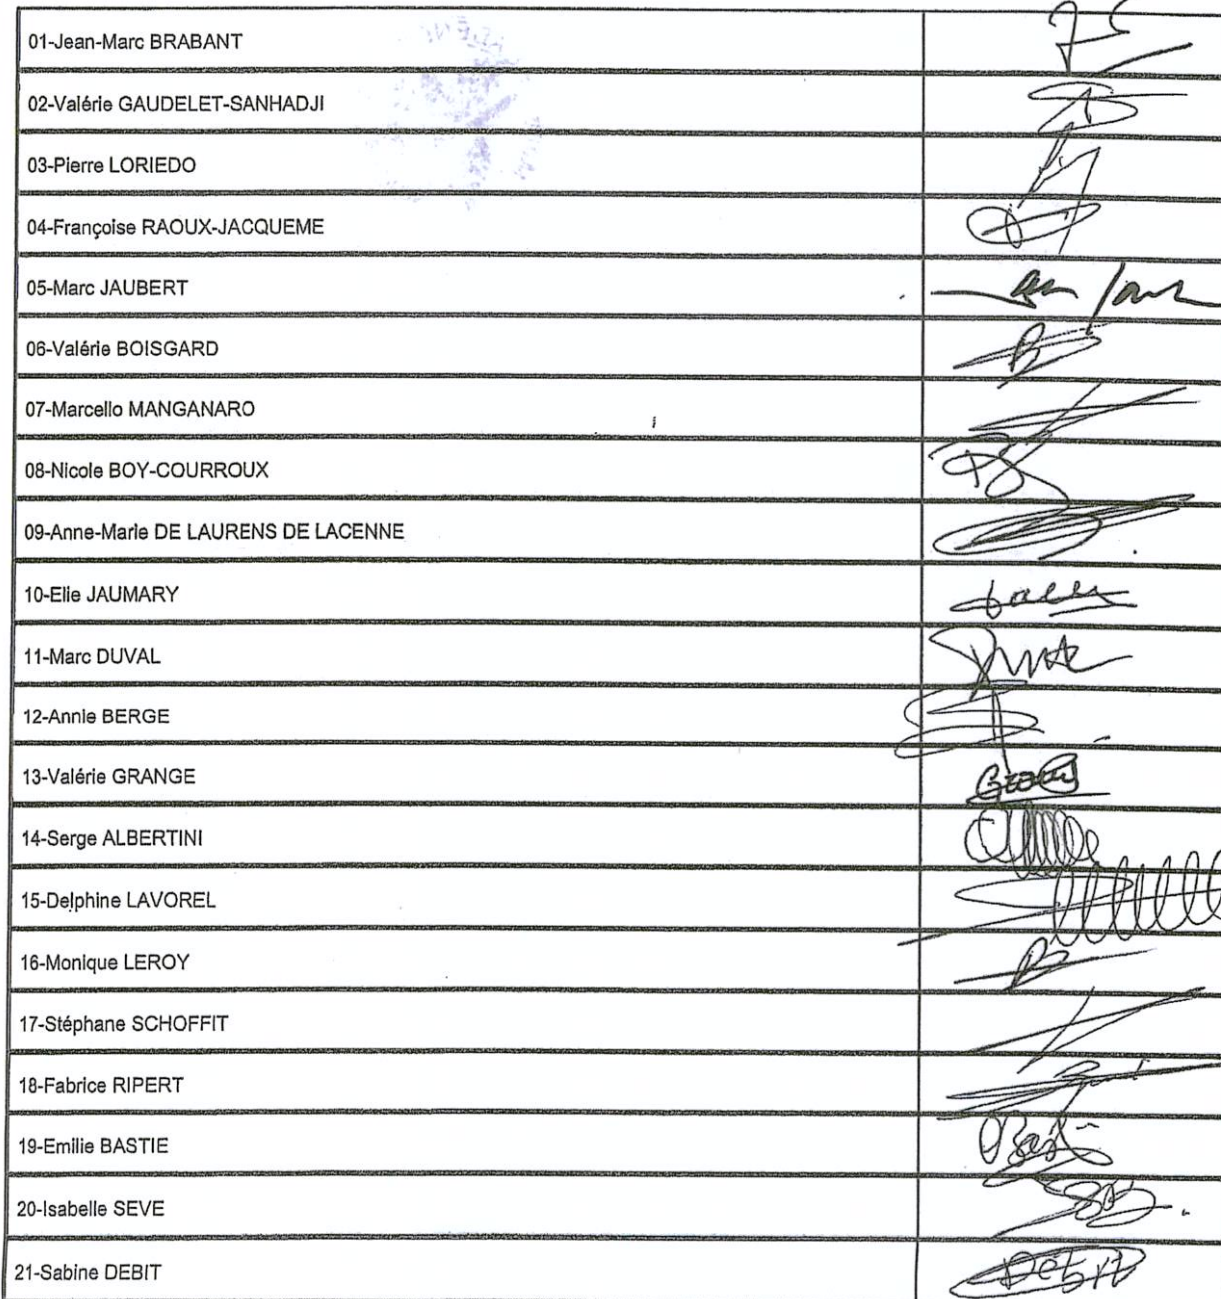 01-Jean-Marc BRABANT
02-Valérie GAUDELET-SANHADJI
03-Pierre LORIEDO
04-Françoise RAOUX-JACQUEME
05-Marc JAUBERT
06-Valérie BOISGARD
07-Marcello MANGANARO
08-Nicole BOY-COURROUX
09-Anne-Marie DE LAURENS DE LACENNE
10-Elie JAUMARY
11-Marc DUVAL
12-Annie BERGE
13-Valérie GRANGE
14-Serge ALBERTINI
15-Delphine LAVOREL
16-Monique LEROY
17-Stéphane SCHOFFIT
18-Fabrice RIPERT
19-Emilie BASTIE
20-Isabelle SEVE
21-Sabine DEBIT